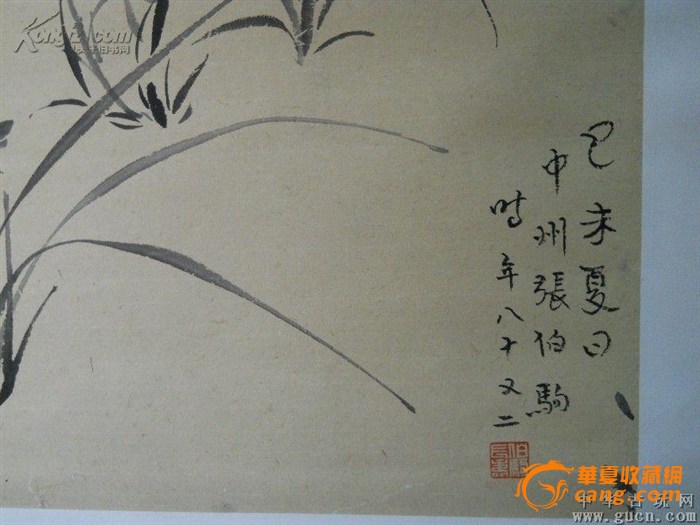 己未夏日
中州張伯駒
時年八十又二
Kongfz.com
孔夫子旧书网
華夏收藏網
cang.com
中华古玩网
www.gucn.com